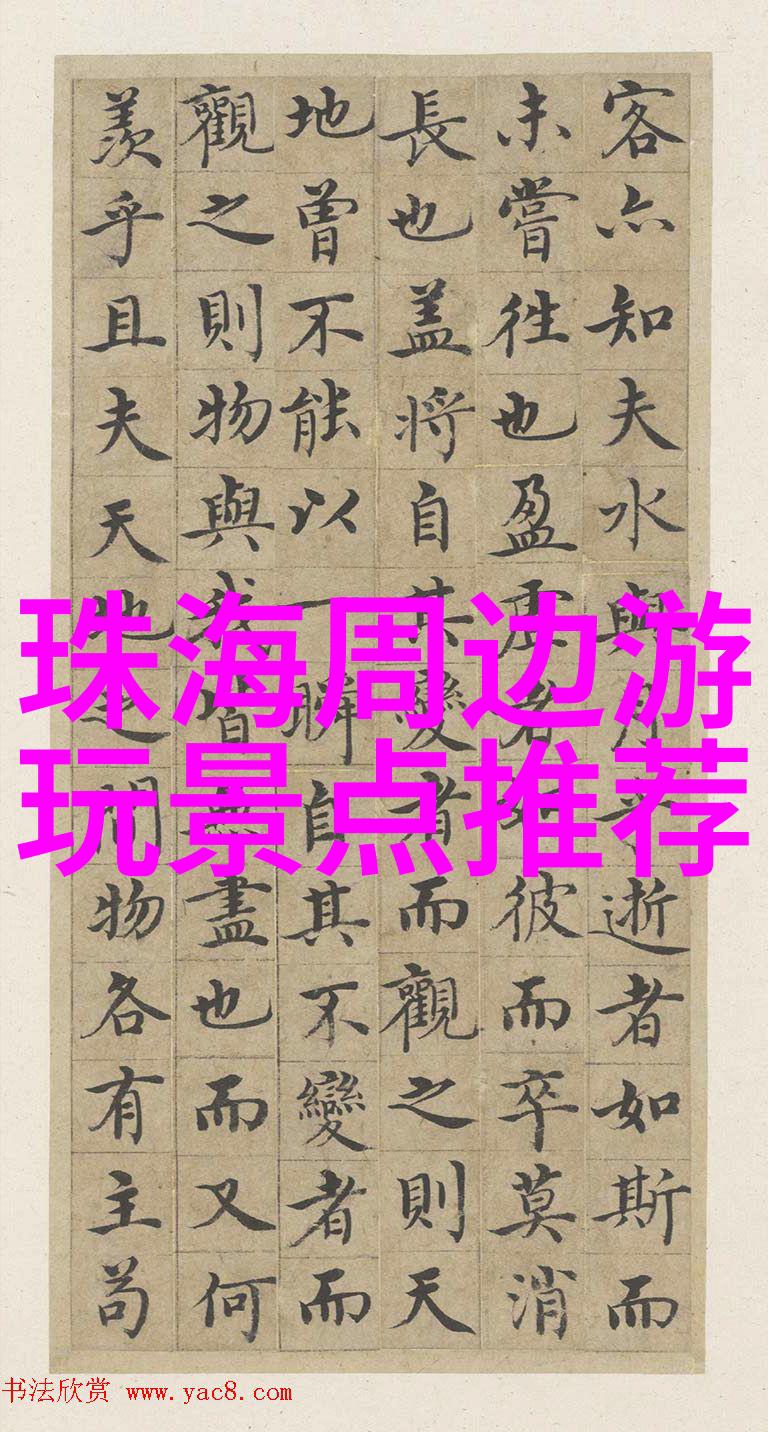 客亦知夫水與月乎逝者如斯而
未嘗往也盈虛者如彼而卒莫消
長也盖將自其變者而觀之則天
地曾不能以一瞬自其不變者而
觀之則物與我皆無盡也而又何
羨乎且夫天地之間物各有主苟
珠海周边游
玩景点推荐
书法欣赏 www.yac8.com